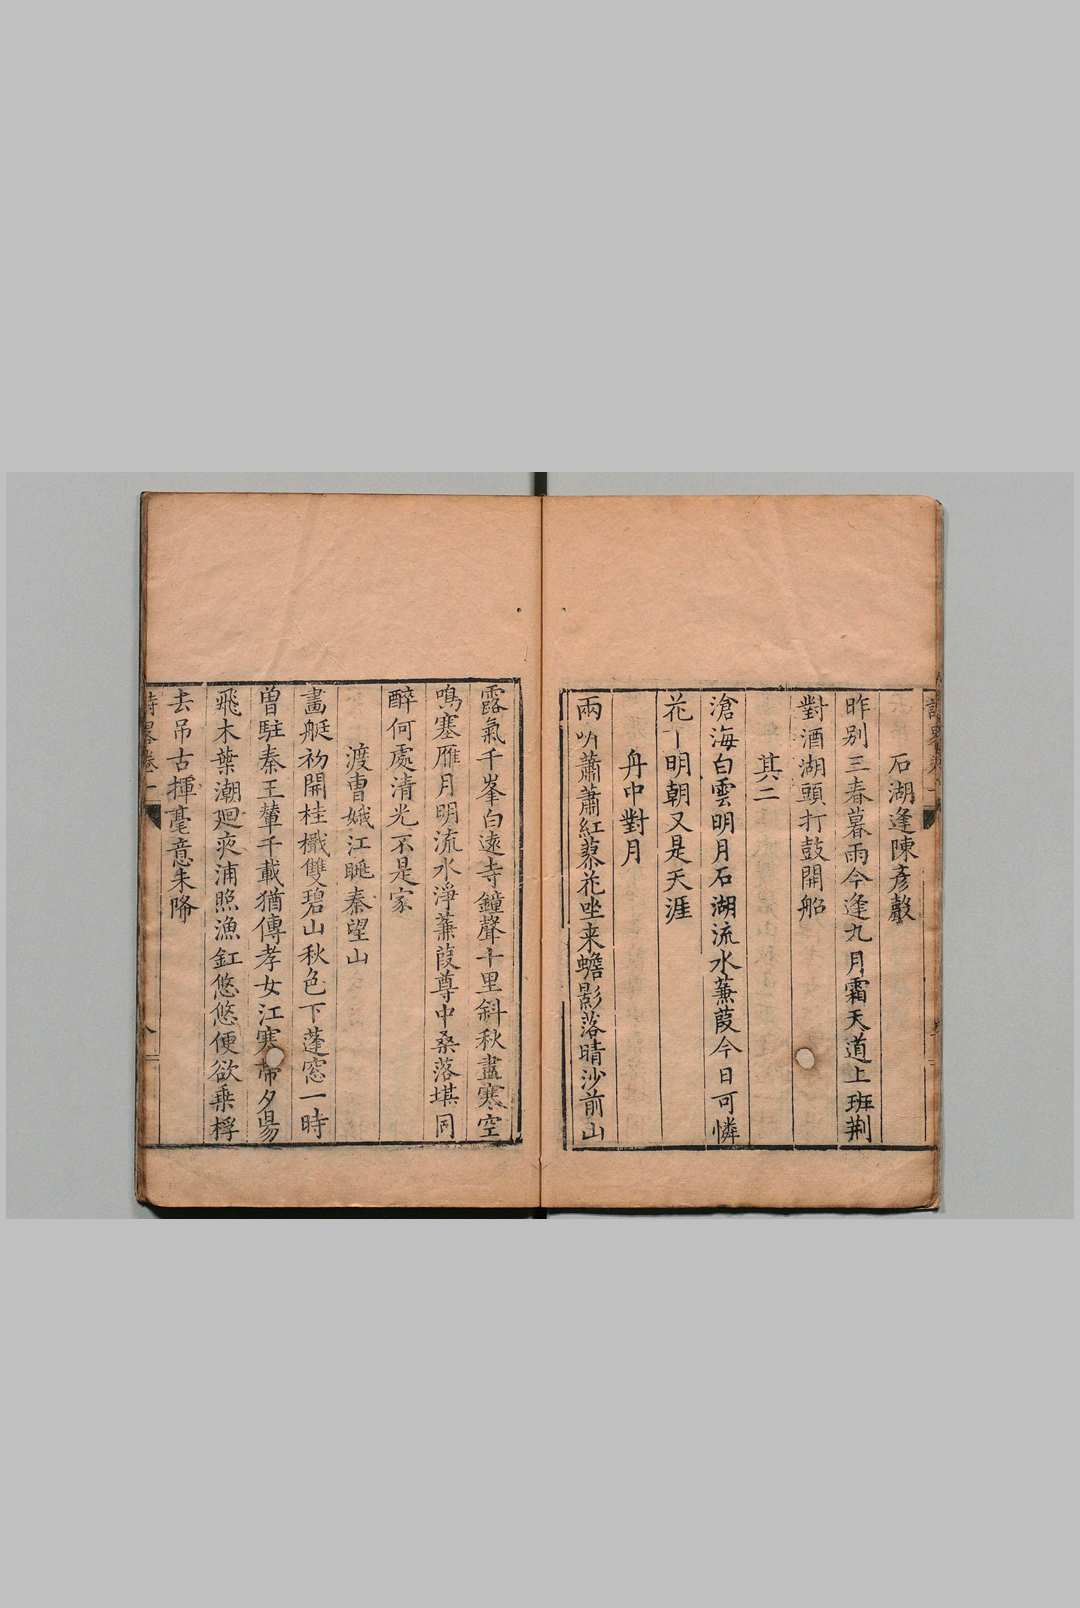 石湖逢陳彥
昨别三春暮雨今逢九月霜天道上班荆
對酒湖頭打鼓開船
其二
滄海白雲明月石湖流水蒹葭今日可憐
花下明朝又是天涯
舟中對月
兩岍蕭蕭紅蓼花坐来蟾影落晴沙前山
露氣千峯白遠寺鐘聲十里斜秋盡寒空
鳴塞雁月明流水淨蒹葭尊中桑落堪同
醉何處清光不是家
渡曹娥江眺秦望山
畫艇初開桂檝雙碧山秋色下蓬窓一時
曾駐秦王輦千載猶傳孝女江寒帶夕陽
飛木葉潮廻夾浦照漁釭悠悠便欲乗桴
去吊古揮毫意未降